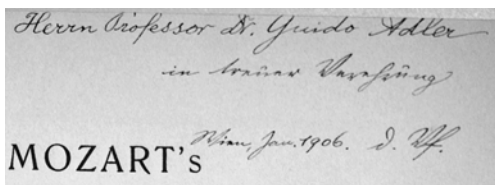 Herrn Professor Dr. Guido Adler
in treuer Verehrung
Wien, Jan. 1906. d. Vf.
MOZART's